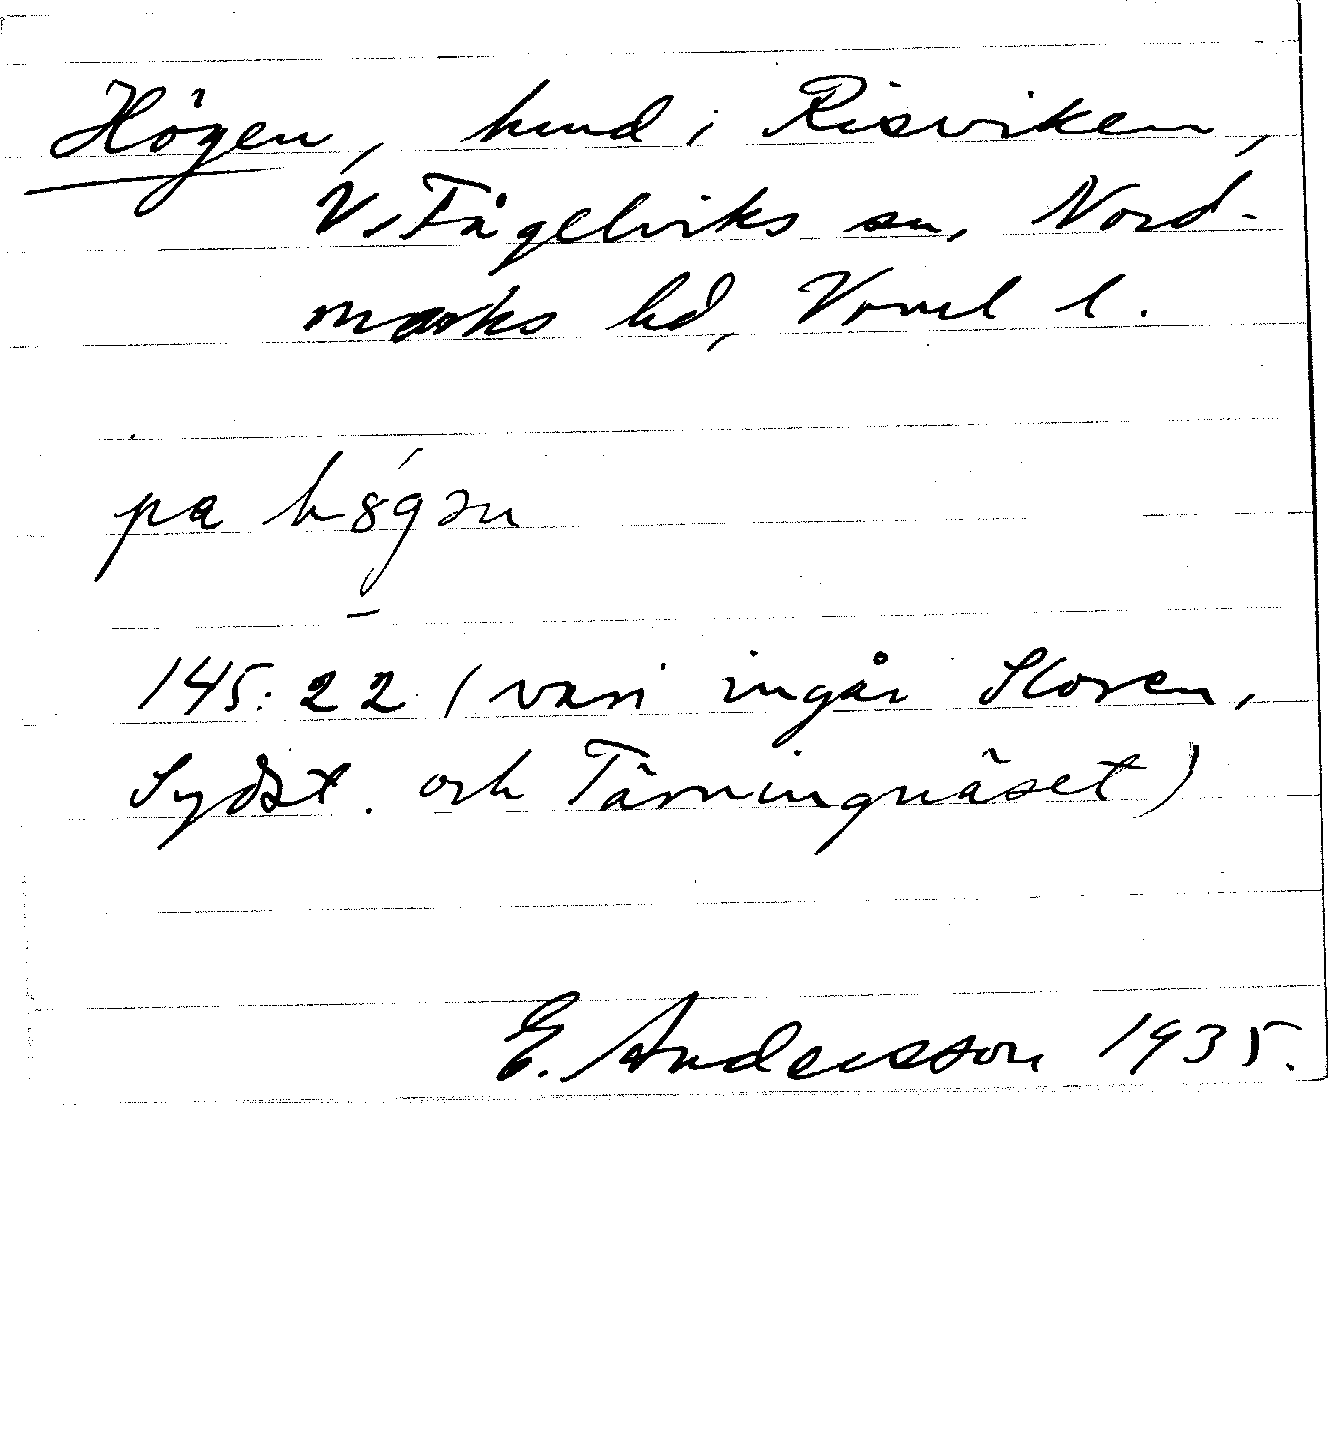 Högen, hmd i Risviken,
V. Fågelviks sn, Nord-
marks hd, Vrml l.
pa
145:22 (vari ingår Storen,
Sydst. och Tärningnäset)
E. Andersson 1935.